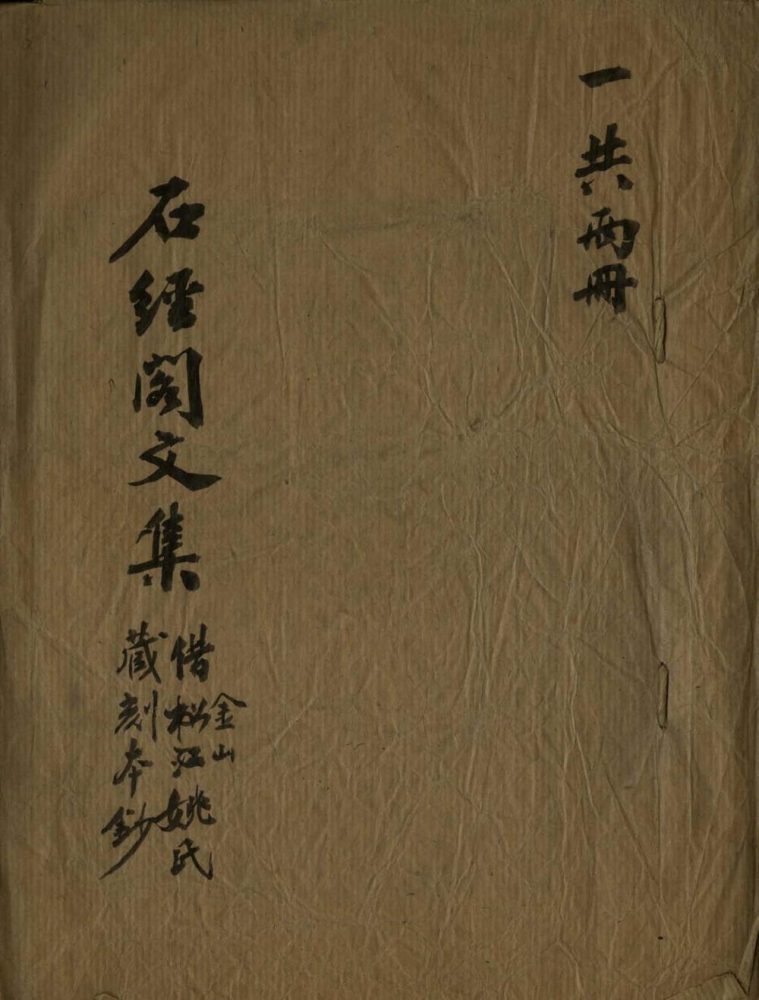 一 共两冊
石經閣文集
金山
借松江姚氏
藏刻本鈔